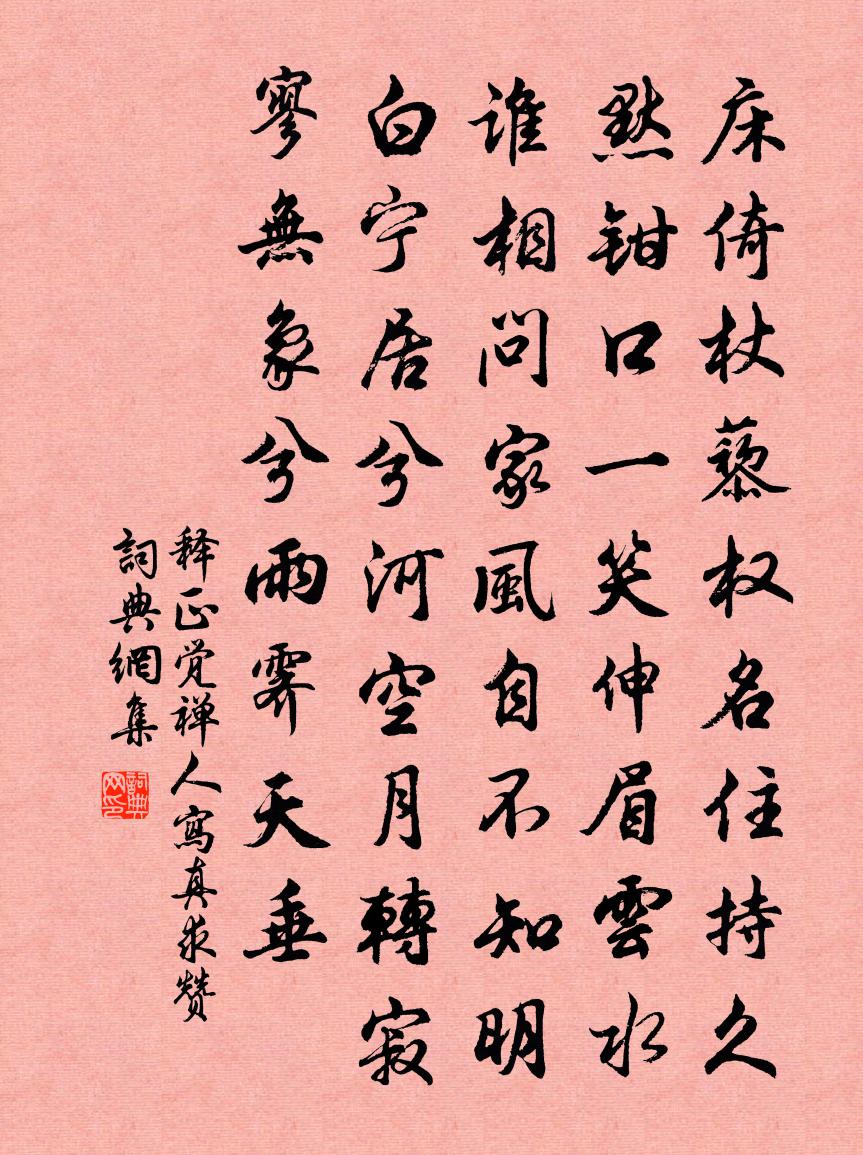 床倚杖藜权名住持久
默钳口一笑伸眉雲水
谁相問家風自不知明
白宁居兮河空月轉寂
寥無象兮雨霁天垂
释正觉禅人寫真求赞
詞典網集
詞典网印